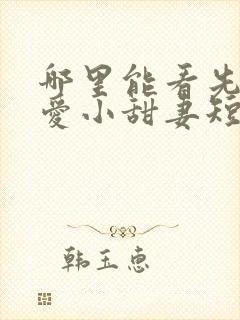 哪里能看先
爱小甜妻短
韩玉惠